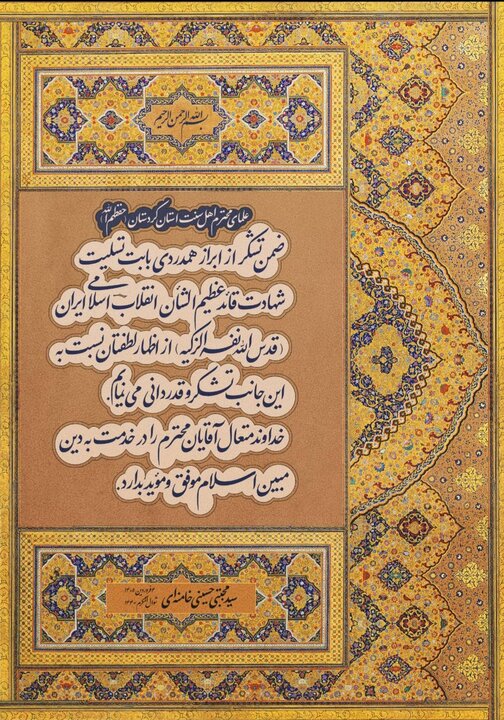 بسم الله الرحمن الرحیم
علمای محترم اهل سنت استان کردستان (حفظهم‌الله)
ضمن تشکر از ابراز همدردی بابت تسلیت
شهادت قائد عظیم الشأن انقلاب اسلامی ایران
(قدس الله نفسه الزکیه) از اظهار لطفتان نسبت به
این جانب تشکر و قدردانی می نمایم.
خداوند متعال آقایان محترم را در خدمت به دین
مبین اسلام موفق و مؤید بدارد.
سید مجتبی حسینی خامنه‌ای
فروردین